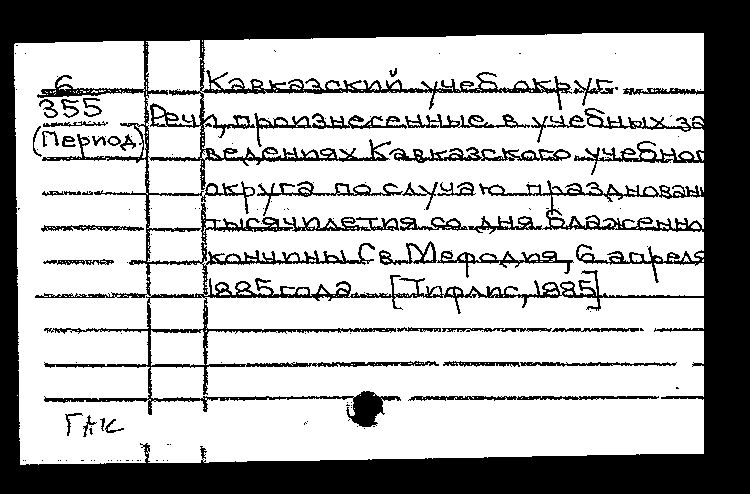 6
355
(Период.)
Кавказский учеб. округ.
Речи, произнесенные в учебных за
ведениях Кавказского учебног
округа по случаю празднован
тысячилетия со дня блаженно
кончины Св. Мефодия, 6 апреля
1885 года [Тифлис, 1885]
ГАК